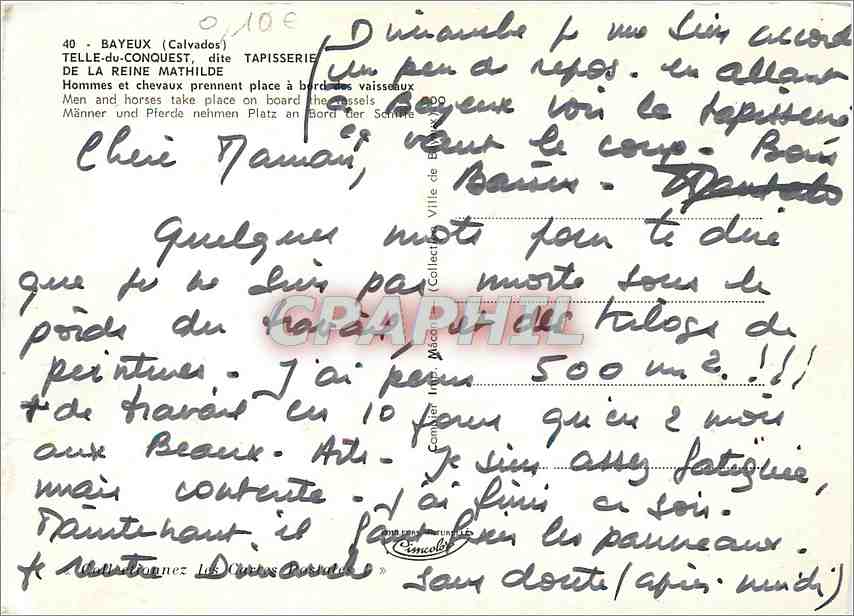 0,10€
40 - BAYEUX (Calvados)
TELLE-du-CONQUEST, dite TAPISSERIE
DE LA REINE MATHILDE
Hommes et chevaux prennent place à bord des vaisseaux
Men and horses take place on board the vessels
Männer und Pferde nehmen Platz an Bord der Schiffe
Chère Maman,
Quelques mots pour te dire
que je ne suis pas morte sous le
poids du travail, et des kilogs de
peintures - J'ai peint 500 m2. !!!
+ de travail en 10 jours qu'en 2 mois
aux Beaux-Arts - Je suis assez fatiguée,
mais contente - J'ai fini ce soir.
Maintenant il faut les panneaux.
Je rentre Dimanche sans doute (après-midi)
Dimanche je me suis accordé
un peu de repos - en allant
à Bayeux voir la tapisserie
ça vaut le coup - Bons
Baisers -
Combier Imp. Mâcon (Collection Ville de BAYEUX)
COULEURS NATURELLES
Cimcolor
« Collectionnez les Cartes Postales ! »
CPAPHIL